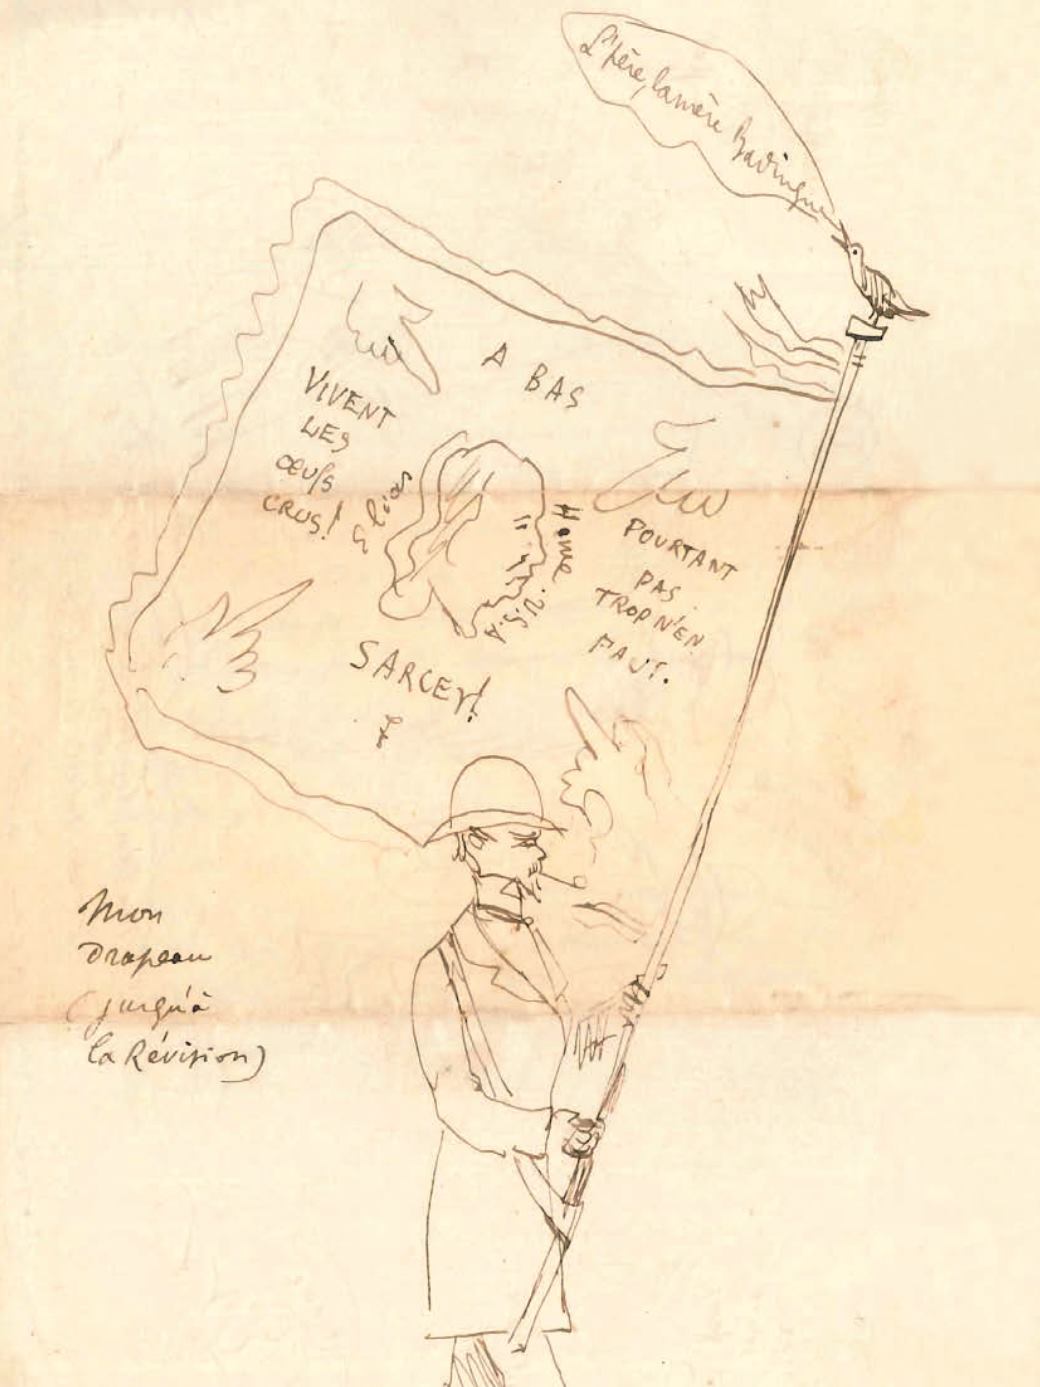 L'père, la mère Badingue
A BAS
VIVENT
LES
œufs
CRUS!
Elias
Howe
U.S.A.
POURTANT
PAS
TROP N'EN
FAUT.
SARCEY!
Mon
Drapeau
(jusqu'à
la Révision)